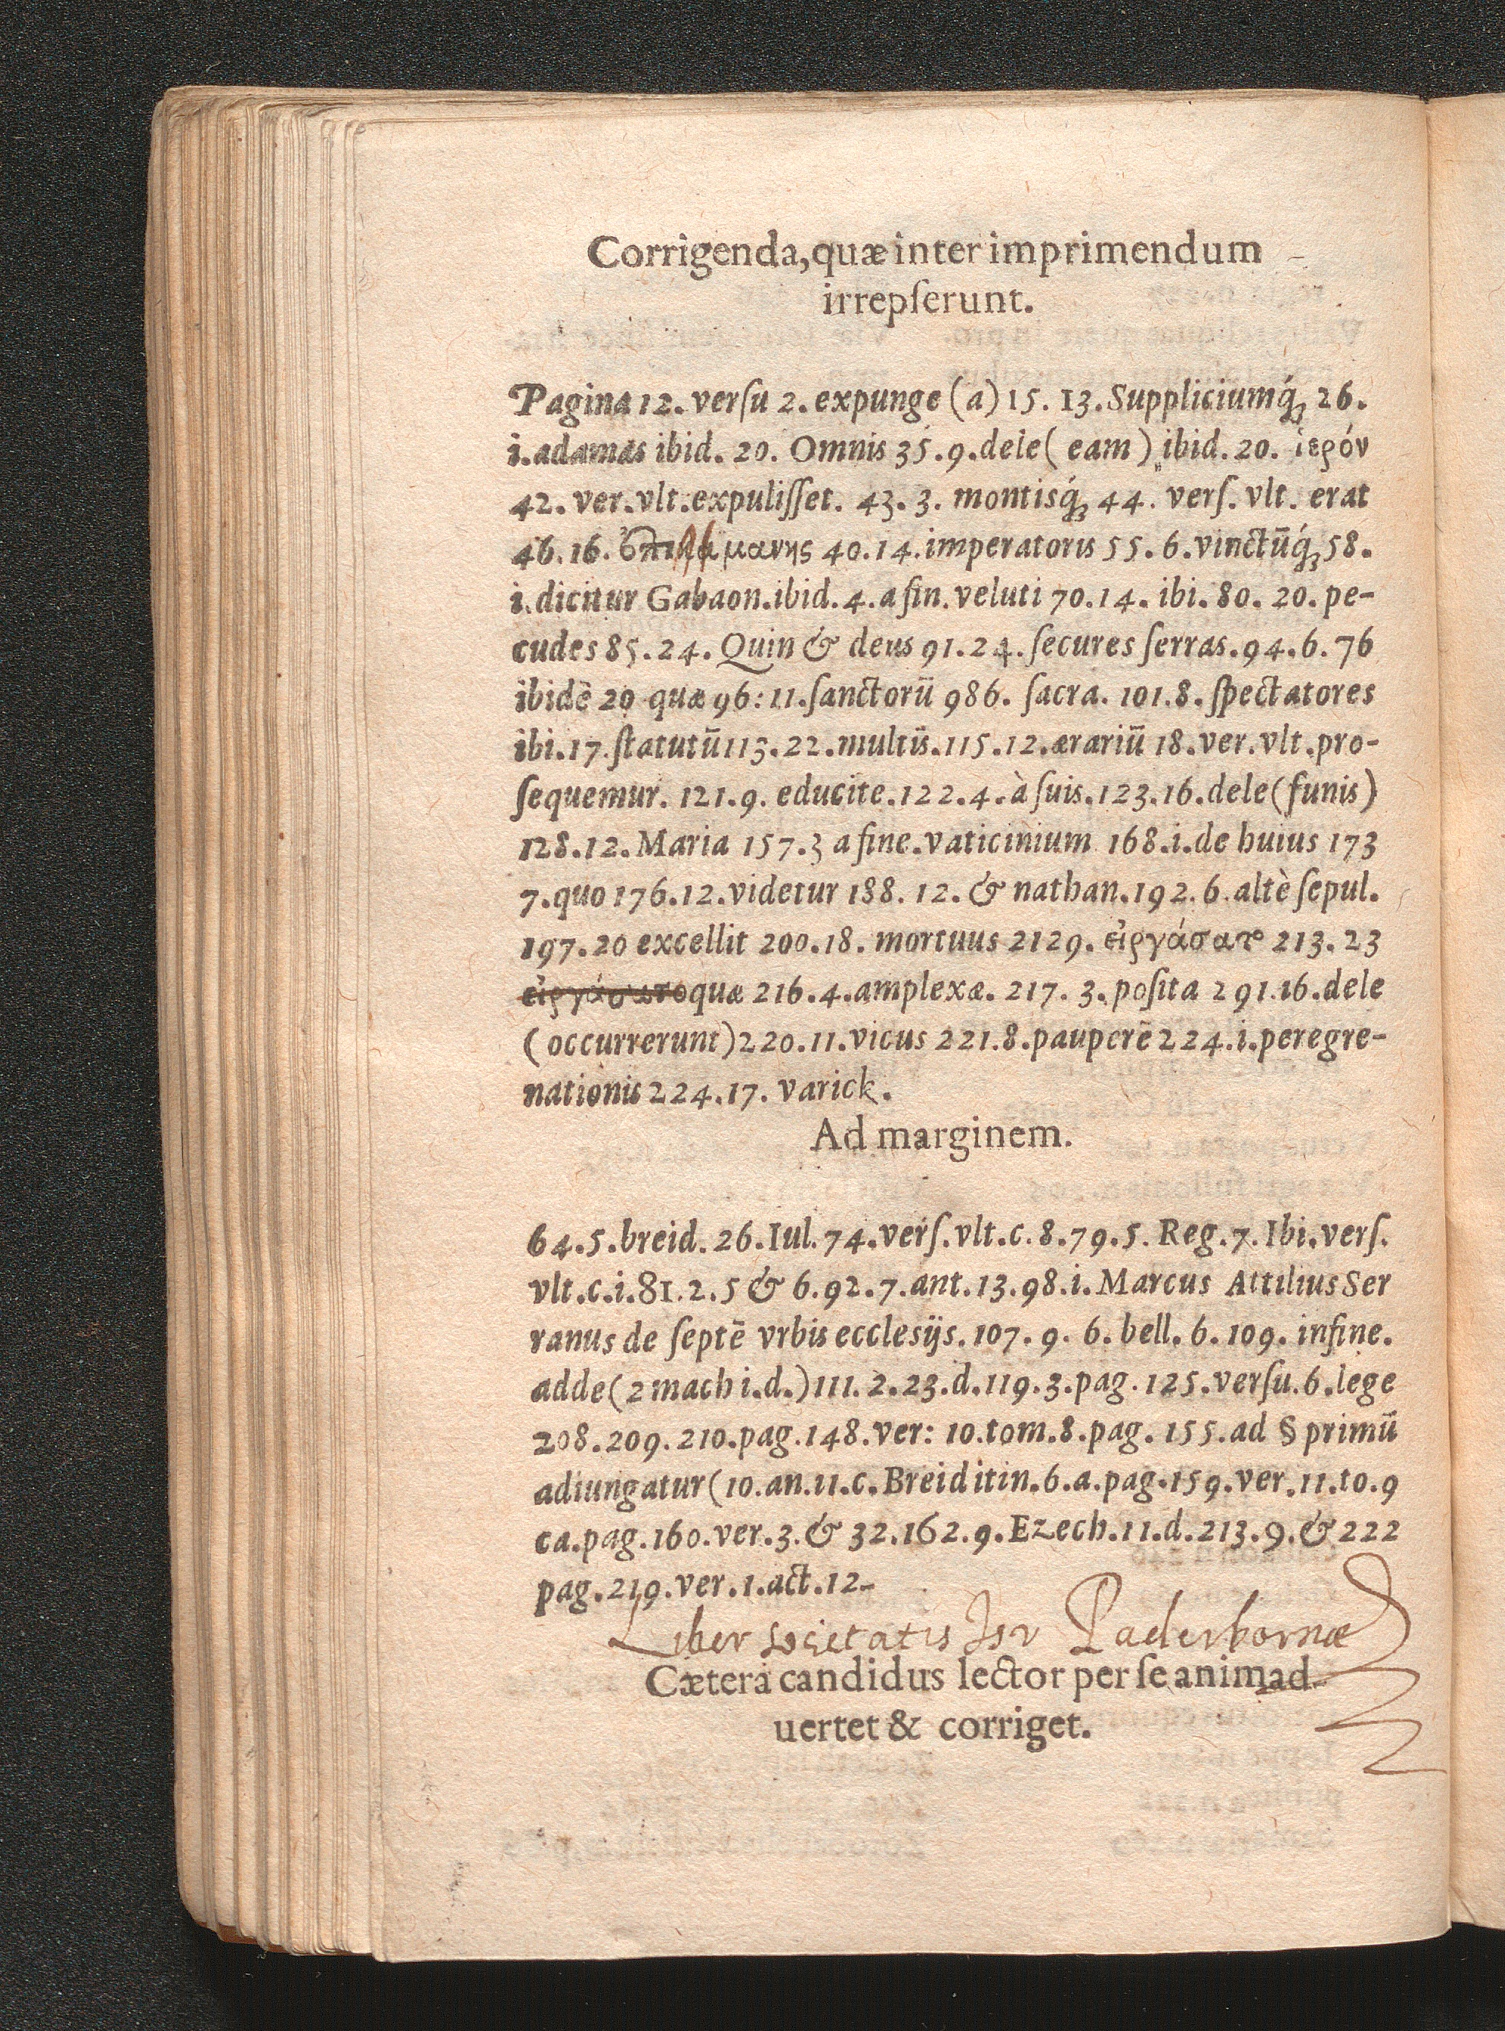 Corrigenda, quæ inter imprimendum
irrepſerunt.
Pagina 12. verſu 2. expunge (a) 15. 13. Suppliciumq́ꝫ 26.
i. adamas ibid. 20. Omnis 35. 9. dele ( eam ) ibid. 20. ἱερόν
42. ver. vlt. expuliſſet. 43. 3. montisq́ꝫ 44. verſ. vlt. erat
46. 16. μανης 40. 14. imperatoris 55. 6. vinctūq́ꝫ 58.
i. dicitur Gabaon. ibid. 4. a fin. veluti 70. 14. ibi. 80. 20. pe-
cudes 85. 24. Quin & deus 91. 24. ſecures ſerras. 94. 6. 76
ibidē 20 quæ 96: 11. ſanctorū 986. ſacra. 101. 8. ſpectatores
ibi. 17. ſtatutū 113. 22. multis. 115. 12. ærariū 18. ver. vlt. pro-
ſequemur. 121. 9. educite. 122. 4. à ſuis. 123. 16. dele (funis)
128. 12. Maria 157. 3 a fine. vaticinium 168. i. de huius 173
7. quo 176. 12. videtur 188. 12. & nathan. 192. 6. altè ſepul.
197. 20 excellit 200. 18. mortuus 2129. εἰργάσατο 213. 23
εἰργάσατο quæ 216. 4. amplexæ. 217. 3. poſita 291. 16. dele
( occurrerunt) 220. 11. vicus 221. 8. pauperē 224. i. peregre-
nationis 224. 17. varick.
Ad marginem.
64. 5. breid. 26. Iul. 74. verſ. vlt. c. 8. 79. 5. Reg. 7. Ibi. verſ.
vlt. c. i. 81. 2. 5 & 6. 92. 7. ant. 13. 98. i. Marcus Attilius Ser
ranus de ſeptē vrbis ecclesijs. 107. 9. 6. bell. 6. 109. in fine.
adde (2 mach i. d.) 111. 2. 23. d. 119. 3. pag. 125. verſu. 6. lege
208. 209. 210. pag. 148. ver: 10. tom. 8. pag. 155. ad § primū
adiungatur (10. an. 11. c. Breid itin. 6. a. pag. 159. ver. 11. to. 9
ca. pag. 160. ver. 3. & 32. 162. 9. Ezech. 11. d. 213. 9. & 222
pag. 219. ver. 1. act. 12.
Liber societatis Jsv Paderbornæ
Cætera candidus lector per ſe animad-
uertet & corriget.